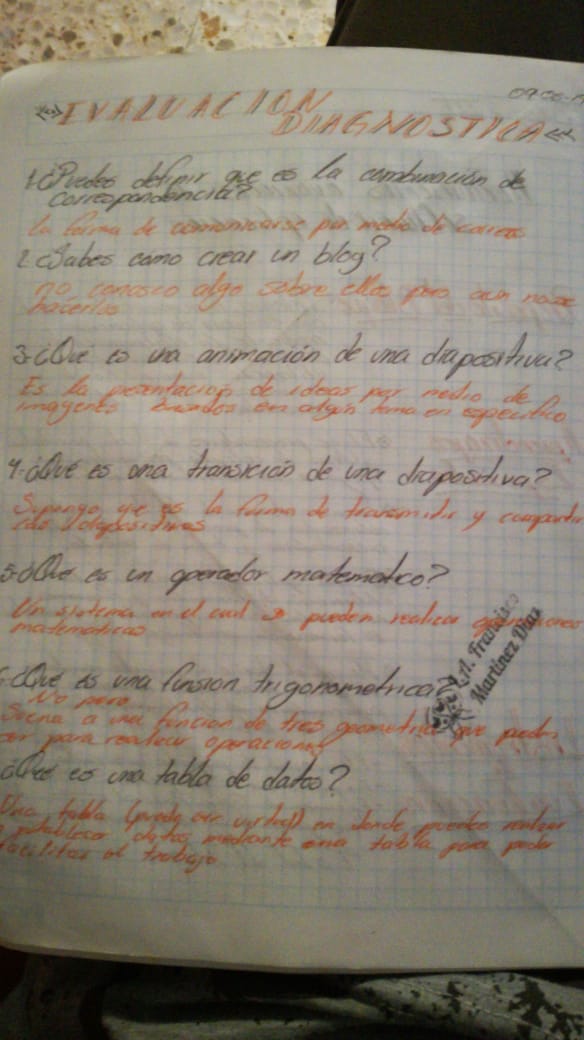 09-06-
EVALUACION
DIAGNOSTICA
1.¿Puedes definir que es la combinación de
correspondencia?
La forma de comunicarse por medio de correos
2.¿Sabes como crear un blog?
no conosco algo sobre ellos pero aun no se
hacerlos
3.¿Qué es una animación de una diapositiva?
Es la presentación de ideas por medio de
imagenes en algún tema en especifico
4.¿Qué es una transición de una diapositiva?
Supongo que es la forma de transmitir y compartir
las diapositivas
5.¿Qué es un operador matematico?
Un sistema en el cual se pueden realizar operaciones
matematicas
¿Qué es una funsion trigonometrica?
No pero
Suena a una funcion de tres geometrica que pueden
ser para realizar operaciones
¿Qué es una tabla de datos?
Una tabla (puede ser virtual) en donde puedes realizar
o establecer datos mediante una tabla para poder
facilitar el trabajo
L.A. Francisco
Martinez Diaz